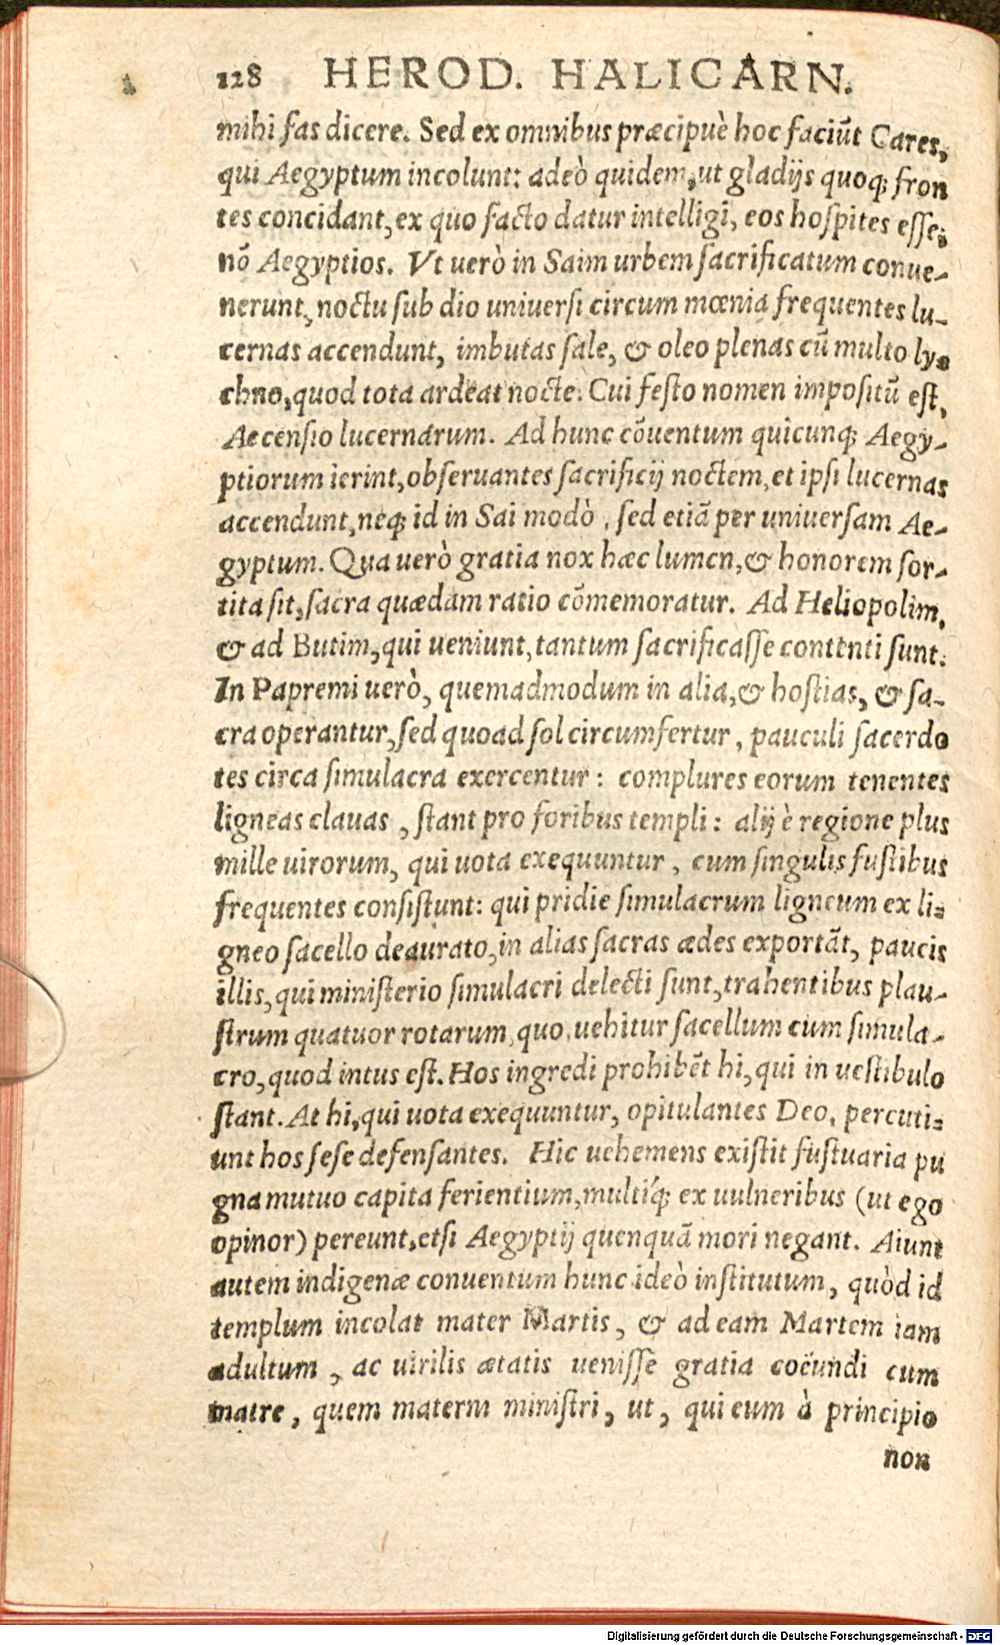 128 HEROD. HALICARN.
mihi fas dicere. Sed ex omnibus præcipuè hoc faciūt Cares,
qui Aegyptum incolunt: adeò quidem, ut gladijs quoq; fron
tes concidant, ex quo facto datur intelligi, eos hospites esse,
nō Aegyptios. Vt uerò in Saim urbem sacrificatum conue-
nerunt, noctu sub dio uniuersi circum mœnia frequentes lu-
cernas accendunt, imbutas sale, & oleo plenas cū multo ly-
chno, quod tota ardeat nocte. Cui festo nomen impositū est,
Accensio lucernarum. Ad hunc cōuentum quicunq; Aegy-
ptiorum ierint, obseruantes sacrificij noctem, et ipsi lucernas
accendunt, neq; id in Sai modò, sed etiā per uniuersam Ae-
gyptum. Qua uerò gratia nox hæc lumen, & honorem sor-
tita sit, sacra quædam ratio cōmemoratur. Ad Heliopolim,
& ad Butim, qui ueniunt, tantum sacrificasse contenti sunt.
In Papremi uerò, quemadmodum in alia, & hostias, & sa-
cra operantur, sed quoad sol circumfertur, pauculi sacerdo
tes circa simulacra exercentur: complures eorum tenentes
ligneas clauas, stant pro foribus templi: alij è regione plus
mille uirorum, qui uota exequuntur, cum singulis fustibus
frequentes consistunt: qui pridie simulacrum ligneum ex li-
gneo sacello deaurato, in alias sacras ædes exportāt, paucis
illis, qui ministerio simulacri delecti sunt, trahentibus plau-
strum quatuor rotarum, quo uehitur sacellum cum simula-
cro, quod intus est. Hos ingredi prohibēt hi, qui in uestibulo
stant. At hi, qui uota exequuntur, opitulantes Deo, percuti-
unt hos sese defensantes. Hic uehemens existit fustuaria pu
gna mutuo capita ferientium, multiq́; ex uulneribus (ut ego
opinor) pereunt, etsi Aegyptij quenquā mori negant. Aiunt
autem indigenæ conuentum hunc ideò institutum, quòd id
templum incolat mater Martis, & ad eam Martem iam
adultum, ac uirilis ætatis uenisse gratia coëundi cum
matre, quem materni ministri, ut, qui eum à principio
non
Digitalisierung gefördert durch die Deutsche Forschungsgemeinschaft - DFG